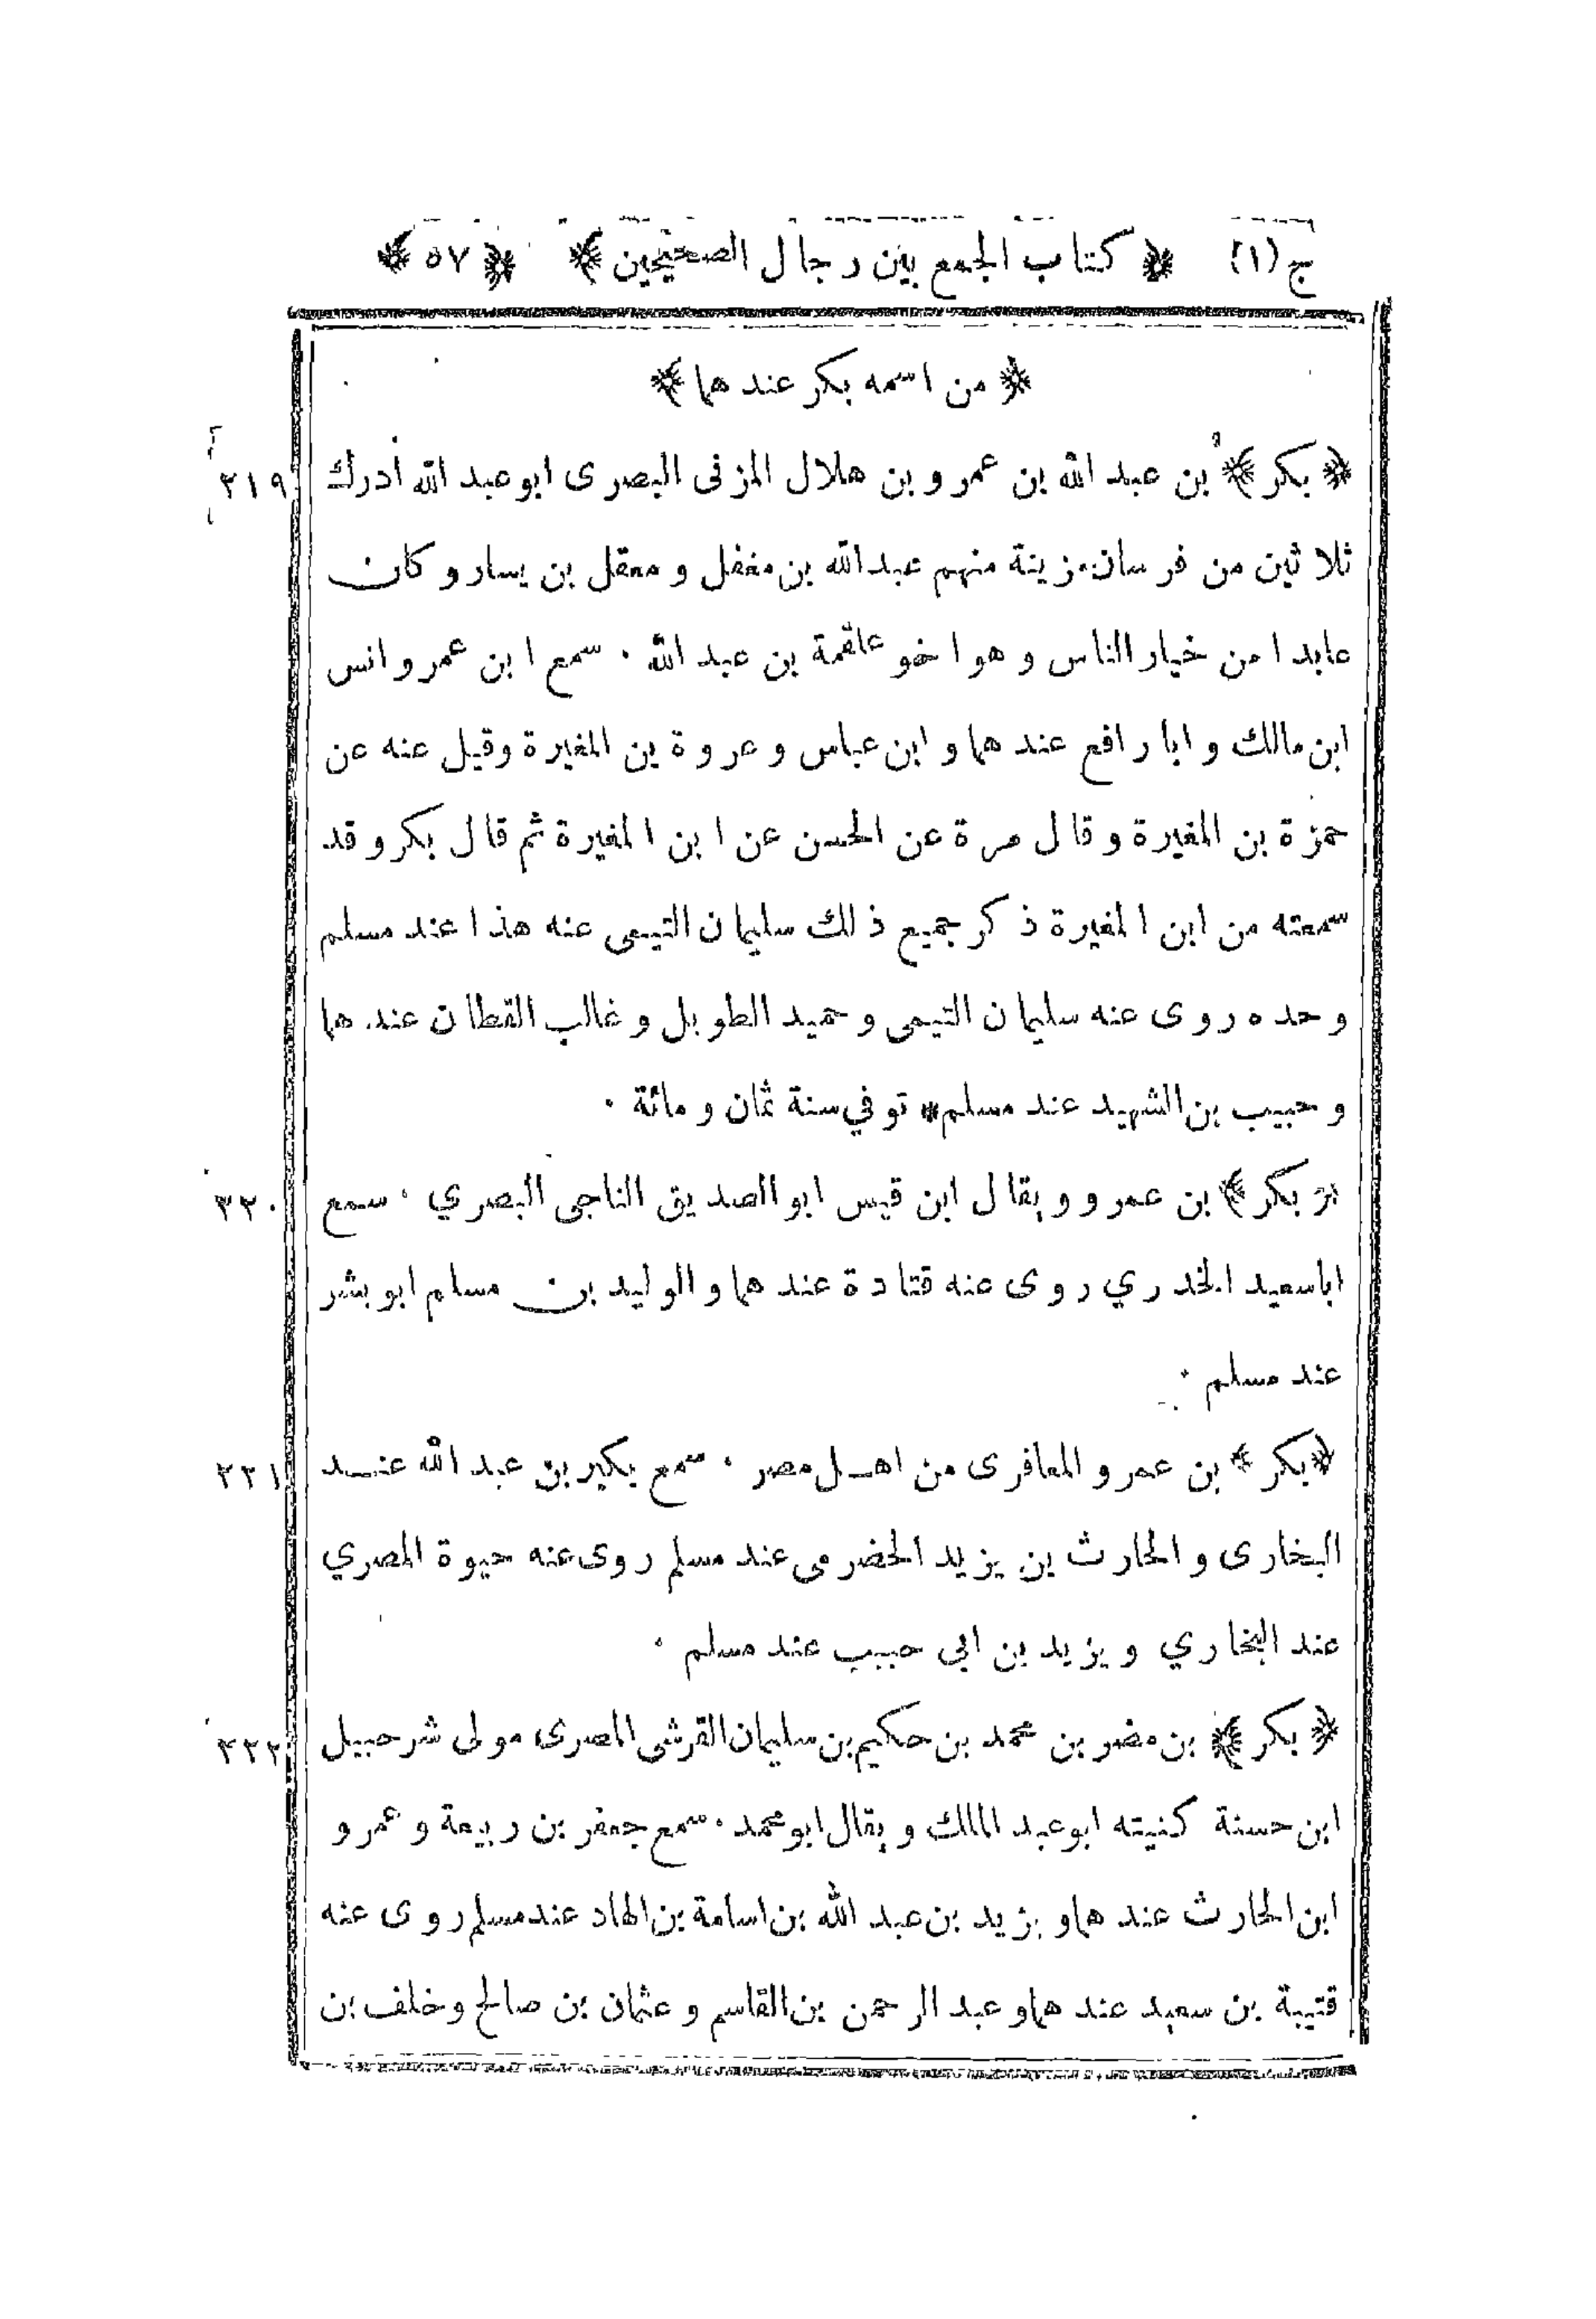 ج (١) ﴿ كتاب الجمع بين رجال الصحيحين ﴾ ﴿ ٥٧ ﴾
﴿ من اسمه بكر عندهما ﴾
﴿ بكر ﴾ بن عبد الله بن عمرو بن هلال المزنى البصرى ابو عبد الله أدرك ٢١٩
ثلاثين من فرسان مزينة منهم عبد الله بن مغفل و معقل بن يسار و كان
عابدا من خيار الناس و هو اخو علقمة بن عبد الله ٠ سمع ابن عمر و انس
ابن مالك و ابا رافع عندهما و ابن عباس و عروة بن المغيرة وقيل عنه عن
حمزة بن المغيرة و قال مرة عن الحسن عن ابن المغيرة ثم قال بكر و قد
سمعته من ابن المغيرة ذكر جميع ذلك سليمان التيمى عنه هذا عند مسلم
وحده روى عنه سليمان التيمى و حميد الطويل و غالب القطان عندهما
و حبيب بن الشهيد عند مسلم * توفي سنة ثمان و مائة ٠
﴿ بكر ﴾ بن عمرو و يقال ابن قيس ابو الصديق الناجى البصري ٠ سمع ٣٢٠
ابا سعيد الخدري روى عنه قتادة عندهما و الوليد بن مسلم ابو بشر
عند مسلم ٠
﴿ بكر ﴾ بن عمرو المعافرى من اهل مصر ٠ سمع بكير بن عبد الله عند ٢٢١
البخارى و الحارث بن يزيد الحضرمى عند مسلم روى عنه حيوة المصري
عند البخاري و يزيد بن ابى حبيب عند مسلم ٠
﴿ بكر ﴾ بن مضر بن محمد بن حكيم بن سليمان القرشى المصرى مولى شرحبيل ٢٢٢
ابن حسنة كنيته ابو عبد الملك و يقال ابو محمد ٠ سمع جعفر بن ربيعة و عمرو
ابن الحارث عندهما و يزيد بن عبد الله بن اسامة بن الهاد عند مسلم روى عنه
قتيبة بن سعيد عندهما و عبد الرحمن بن القاسم و عثمان بن صالح و خلف بن